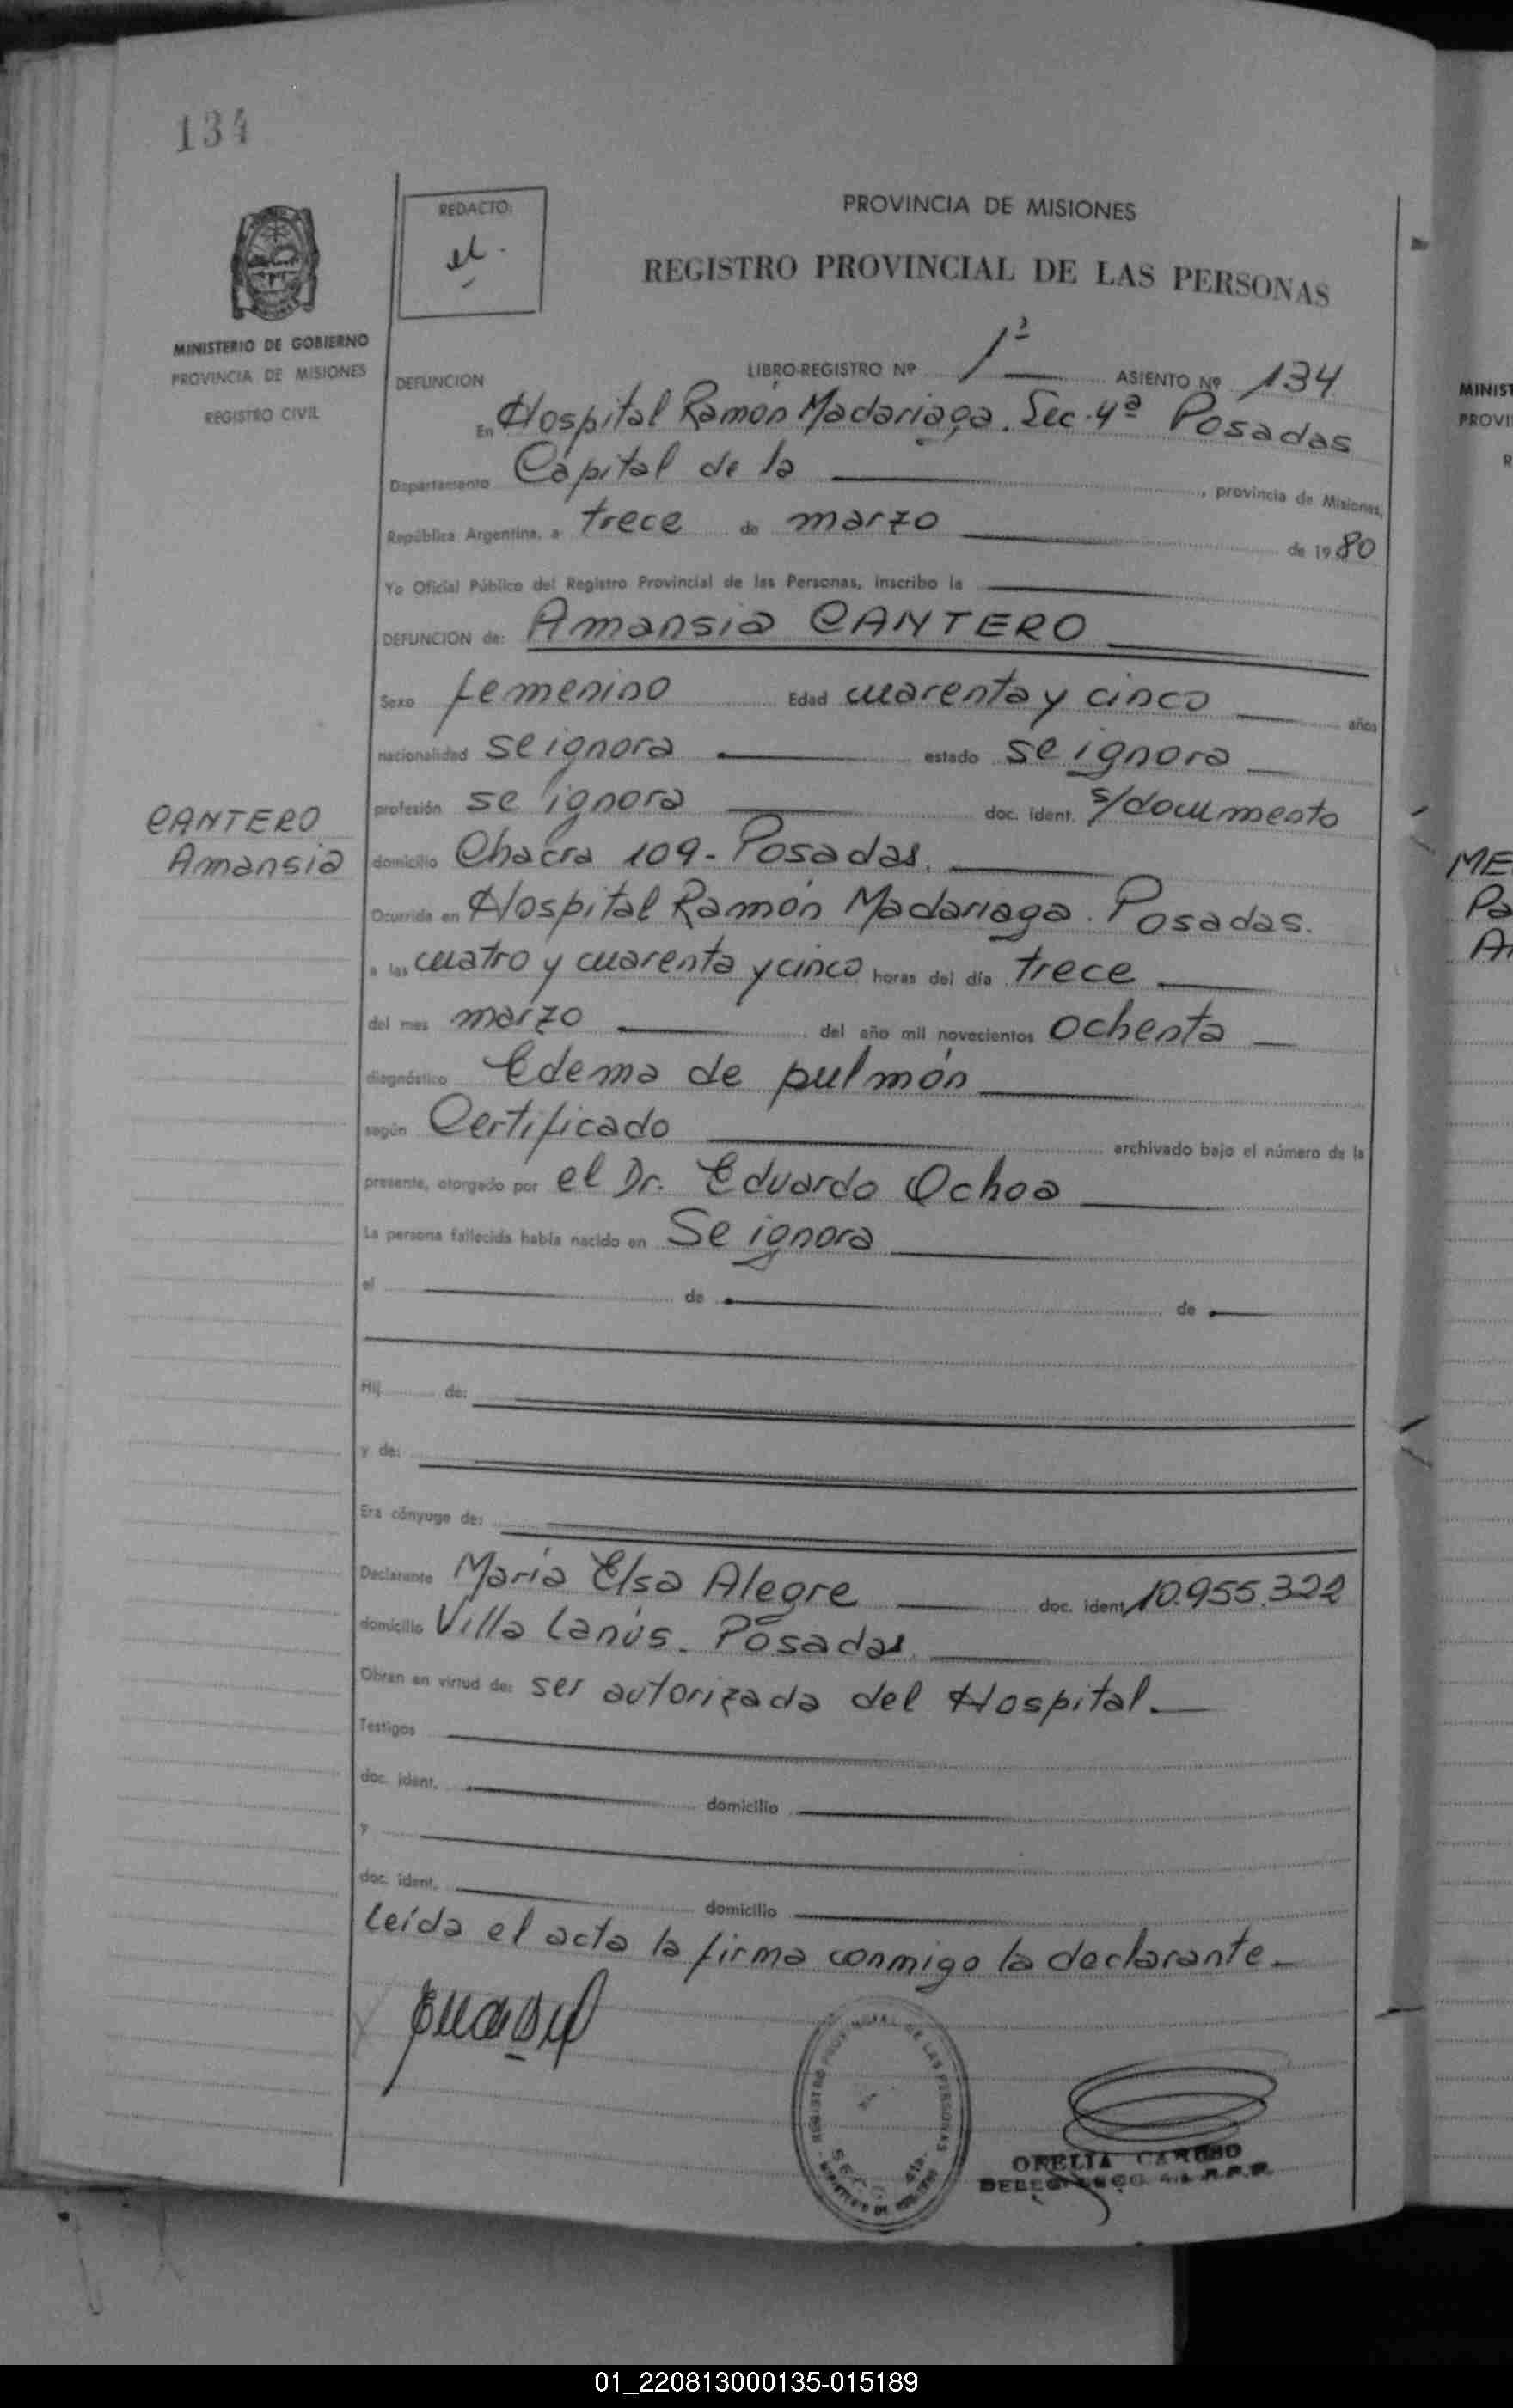 134
REDACTO:
PROVINCIA DE MISIONES
REGISTRO PROVINCIAL DE LAS PERSONAS
MINISTERIO DE GOBIERNO
PROVINCIA DE MISIONES
REGISTRO CIVIL
DEFUNCION LIBRO-REGISTRO Nº 1º ASIENTO Nº 134
En Hospital Ramón Madariaga. Sec. 4ª Posadas
Departamento Capital de la , provincia de Misiones,
República Argentina, a trece de marzo de 1980
Yo Oficial Público del Registro Provincial de las Personas, inscribo la
DEFUNCION de: Amansia CANTERO
Sexo femenino Edad cuarenta y cinco años
nacionalidad se ignora estado se ignora
profesión se ignora doc. ident. s/documento
CANTERO
Amansia
domicilio Chacra 109 - Posadas.
Ocurrida en Hospital Ramón Madariaga. Posadas.
a las cuatro y cuarenta y cinco horas del día trece
del mes marzo del año mil novecientos ochenta
diagnóstico Edema de pulmón
según Certificado archivado bajo el número de la
presente, otorgado por el Dr. Eduardo Ochoa
La persona fallecida había nacido en Se ignora
el de de
Hij de:
y de:
Era cónyuge de:
Declarante María Elsa Alegre doc. ident. 10.955.322
domicilio Villa Lanús. Posadas.
Obran en virtud de: ser autorizada del Hospital.
Testigos
doc. ident. domicilio
y
doc. ident. domicilio
Leída el acta la firma conmigo la declarante.
REGISTRO PROVINCIAL DE LAS PERSONAS
OFELIA CARUSO
MINIST
PROVI
R
ME
Pa
A
01_220813000135-015189